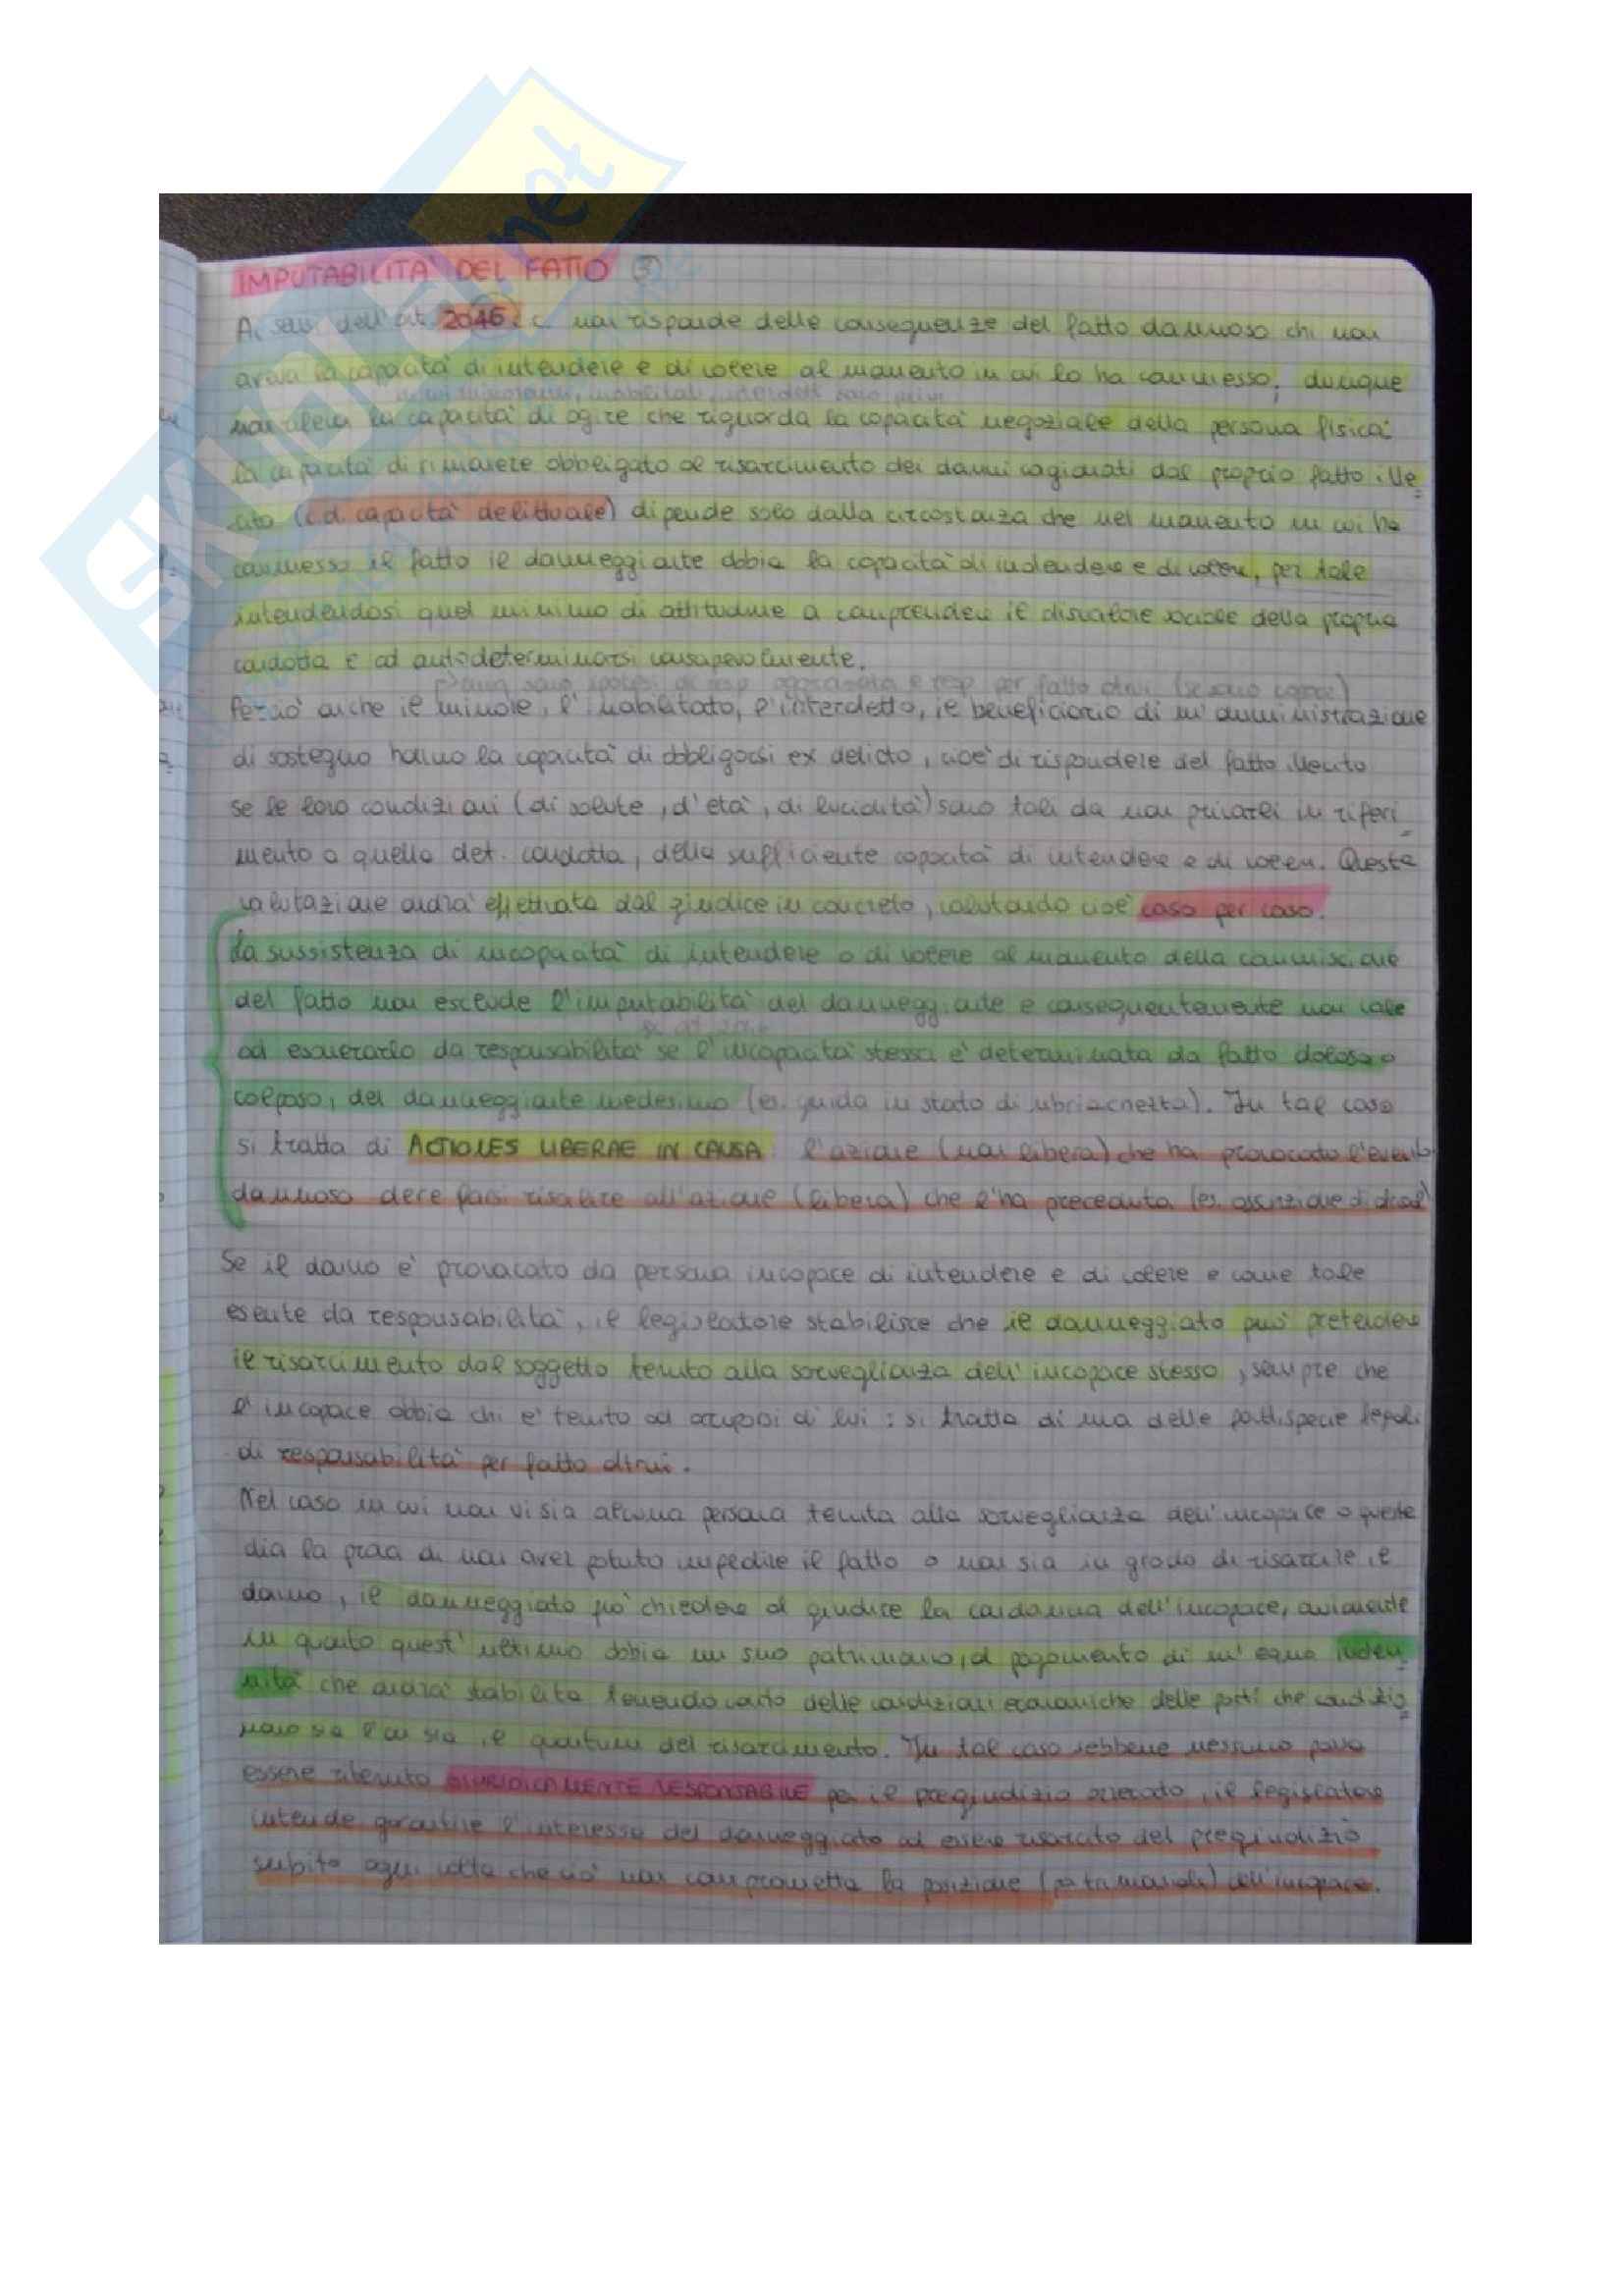 IMPUTABILITA' DEL FATTO ③
Ai sensi dell'art. 2046 c.c. non risponde delle conseguenze del fatto dannoso chi non
aveva la capacità di intendere e di volere al momento in cui lo ha commesso; dunque
minorenni, inabilitati, interdetti
non rileva la capacità di agire che riguarda la capacità negoziale della persona fisica.
La capacità di rimanere obbligato al risarcimento dei danni cagionati dal proprio fatto ille
cito (c.d. capacità delittuale) dipende solo dalla circostanza che nel momento in cui ha
commesso il fatto il danneggiante abbia la capacità di intendere e di volere, per tale
intendendosi quel minimo di attitudine a comprendere il disvalore sociale della propria
condotta e ad autodeterminarsi consapevolmente.
sono ipotesi di resp. aggravata e resp. per fatto altrui (se sono capaci)
Perciò anche il minore, l'inabilitato, l'interdetto, il beneficiario di un'amministrazione
di sostegno hanno la capacità di obbligarsi ex delicto, cioè di rispondere del fatto illecito
se le loro condizioni (di salute, d'età, di lucidità) sono tali da non privarli in riferi
mento a quella det. condotta, della sufficiente capacità di intendere e di volere. Questa
valutazione andrà effettuata dal giudice in concreto, valutando cioè caso per caso.
La sussistenza di incapacità di intendere o di volere al momento della commissione
del fatto non esclude l'imputabilità del danneggiante e conseguentemente non vale
ad esonerarlo da responsabilità se l'incapacità stessa è determinata da fatto doloso o
colposo, del danneggiante medesimo (es. guida in stato di ubriachezza). In tal caso
si tratta di ACTIONES LIBERAE IN CAUSA: l'azione (non libera) che ha provocato l'evento
dannoso deve farsi risalire all'azione (libera) che l'ha preceduta (es. assunzione di alcol)
Se il danno è provocato da persona incapace di intendere e di volere e come tale
esente da responsabilità, il legislatore stabilisce che il danneggiato può pretendere
il risarcimento dal soggetto tenuto alla sorveglianza dell'incapace stesso, sempre che
l'incapace abbia chi è tenuto ad occuparsi di lui: si tratta di una delle fattispecie legali
di responsabilità per fatto altrui.
Nel caso in cui non vi sia alcuna persona tenuta alla sorveglianza dell'incapace o questa
dia la prova di non aver potuto impedire il fatto o non sia in grado di risarcire il
danno, il danneggiato può chiedere al giudice la condanna dell'incapace, ovviamente
in quanto quest'ultimo abbia un suo patrimonio, al pagamento di un'equa inden
nità che andrà stabilita tenendo conto delle condizioni economiche delle parti che condizio
nano sia l'an sia il quantum del risarcimento. In tal caso sebbene nessuno possa
essere ritenuto GIURIDICAMENTE RESPONSABILE per il pregiudizio arrecato, il legislatore
intende garantire l'interesse del danneggiato ad essere risarcito del pregiudizio
subito ogni volta che ciò non comprometta la posizione (patrimoniale) dell'incapace.